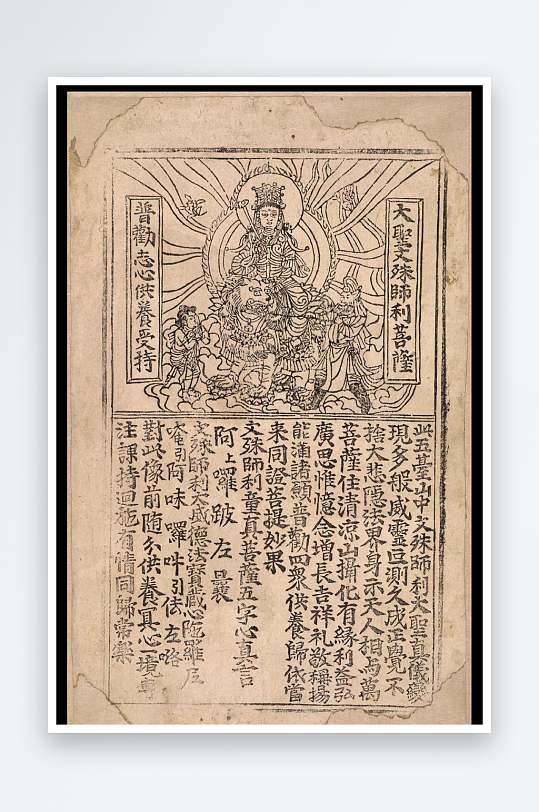 大聖文殊師利菩薩
普勸志心供養受持
此五臺山中文殊師利大聖真儀變
現多般威靈叵測久成正覺不
捨大悲隱法界身示天人相与萬
菩薩住清凉山攝化有緣利益弘
廣思惟憶念增長吉祥礼敬稱揚
能滿諸願普勸四衆供養歸依當
來同證菩提妙果
文殊師利童真菩薩五字心真言
阿上囉跛左曩
文殊師利大威德法寶藏心陁羅尼
唵引阿味囉吽引佉左咯
對此像前随分供養冥心一境專
注課持迴施有情同歸常樂